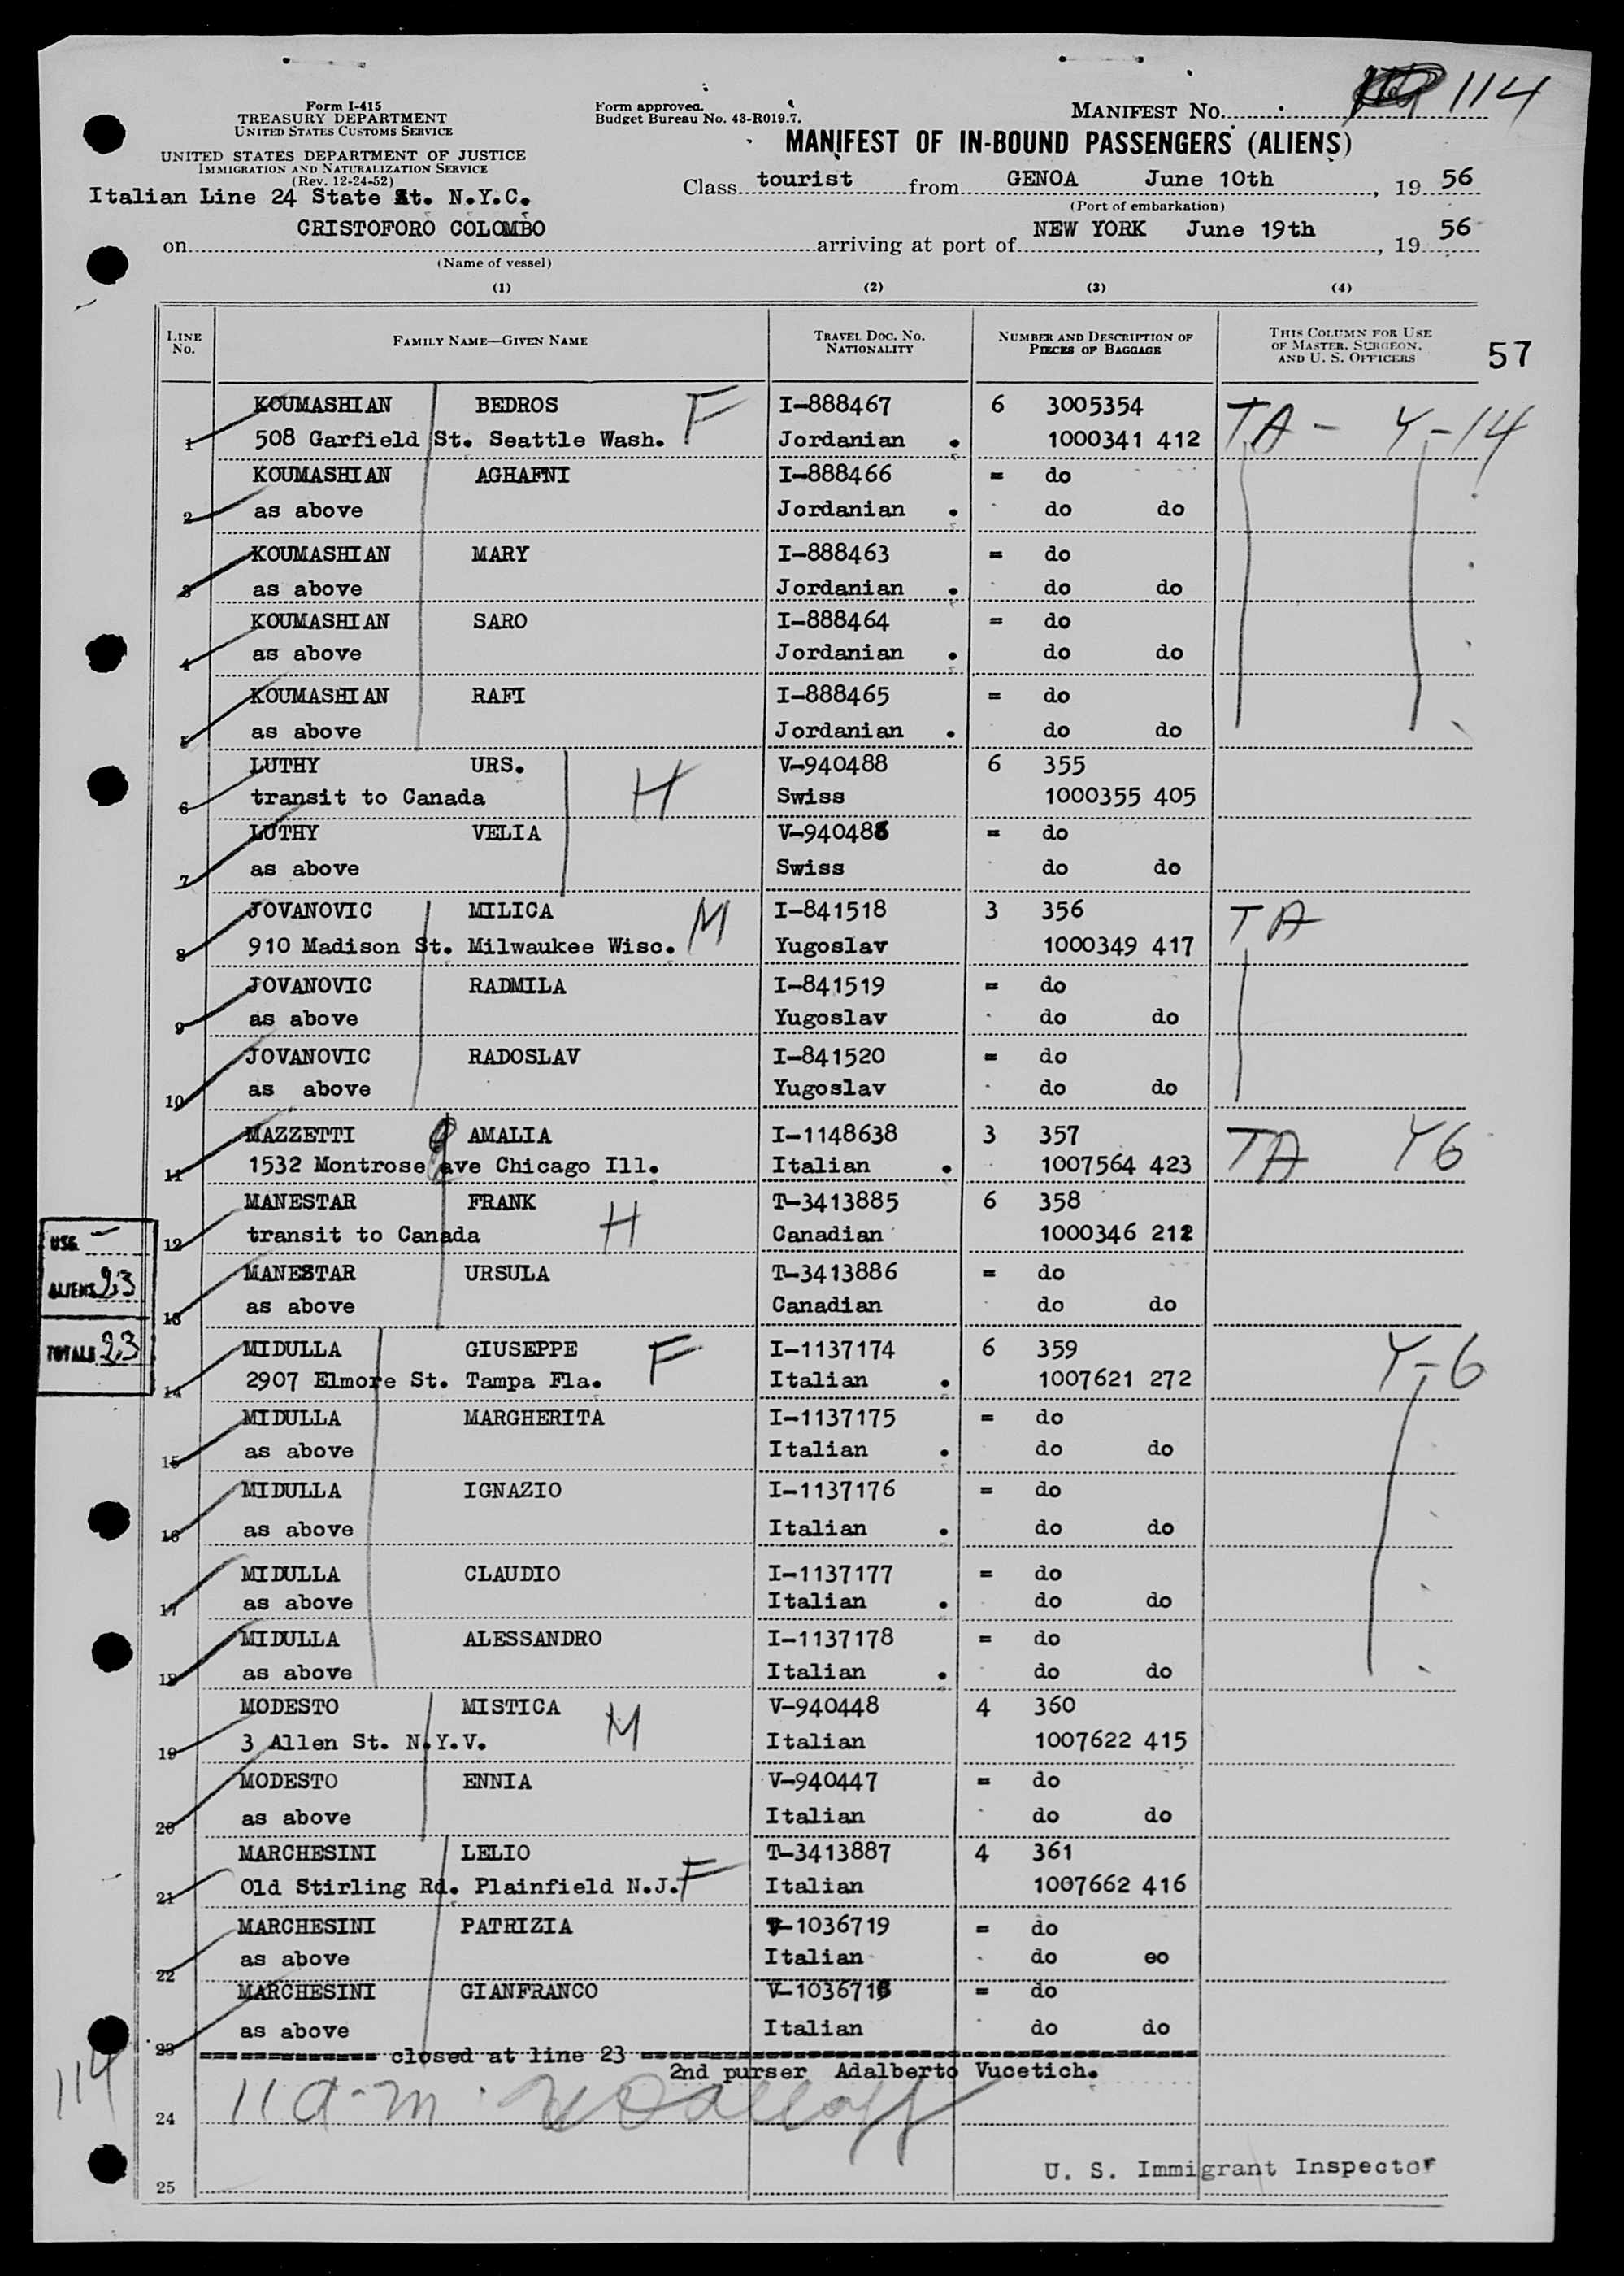 114
Form I-415
TREASURY DEPARTMENT
UNITED STATES CUSTOMS SERVICE
UNITED STATES DEPARTMENT OF JUSTICE
IMMIGRATION AND NATURALIZATION SERVICE
(Rev. 12-24-52)
Form approved.
Budget Bureau No. 43-R019.7.
MANIFEST NO.
MANIFEST OF IN-BOUND PASSENGERS (ALIENS)
Italian Line 24 State St. N.Y.C.
Class tourist from GENOA June 10th, 19 56
(Port of embarkation)
on CRISTOFORO COLOMBO arriving at port of NEW YORK June 19th, 19 56
(Name of vessel)
(1) (2) (3) (4)
LINE NO. FAMILY NAME—GIVEN NAME TRAVEL DOC. NO. NATIONALITY NUMBER AND DESCRIPTION OF PIECES OF BAGGAGE THIS COLUMN FOR USE OF MASTER, SURGEON, AND U. S. OFFICERS
57
KOUMASHIAN BEDROS F I-888467 6 3005354 TA - Y-14
1 508 Garfield St. Seattle Wash. Jordanian . 1000341 412
KOUMASHIAN AGHAFNI I-888466 = do
2 as above Jordanian . do do
KOUMASHIAN MARY I-888463 = do
3 as above Jordanian . do do
KOUMASHIAN SARO I-888464 = do
4 as above Jordanian . do do
KOUMASHIAN RAFI I-888465 = do
5 as above Jordanian . do do
LUTHY URS. H V-940488 6 355
6 transit to Canada Swiss 1000355 405
LUTHY VELIA = do
7 as above Swiss do do
JOVANOVIC MILICA M I-841518 3 356 TA
8 910 Madison St. Milwaukee Wisc. Yugoslav 1000349 417
JOVANOVIC RADMILA I-841519 = do
9 as above Yugoslav do do
JOVANOVIC RADOSLAV I-841520 = do
10 as above Yugoslav do do
MAZZETTI AMALIA I-1148638 3 357 TA Y6
11 1532 Montrose ave Chicago Ill. Italian . 1007564 423
MANESTAR FRANK H T-3413885 6 358
12 transit to Canada Canadian 1000346 212
MANESTAR URSULA T-3413886 = do
13 as above Canadian do do
MIDULLA GIUSEPPE F I-1137174 6 359 Y-6
14 2907 Elmore St. Tampa Fla. Italian . 1007621 272
MIDULLA MARGHERITA I-1137175 = do
15 as above Italian . do do
MIDULLA IGNAZIO I-1137176 = do
16 as above Italian . do do
MIDULLA CLAUDIO I-1137177 = do
17 as above Italian . do do
MIDULLA ALESSANDRO I-1137178 = do
18 as above Italian . do do
MODESTO MISTICA M V-940448 4 360
19 3 Allen St. N.Y.V. Italian 1007622 415
MODESTO ENNIA V-940447 = do
20 as above Italian do do
MARCHESINI LELIO T-3413887 4 361
21 Old Stirling Rd. Plainfield N.J. F Italian 1007662 416
MARCHESINI PATRIZIA V-1036719 = do
22 as above Italian do eo
MARCHESINI GIANFRANCO = do
23 as above Italian do do
============= closed at line 23 =============
2nd purser Adalberto Vucetich.
24 11 a.m.
U. S. Immigrant Inspector
25
USC —
ALIENS 23
TOTALS 23
114